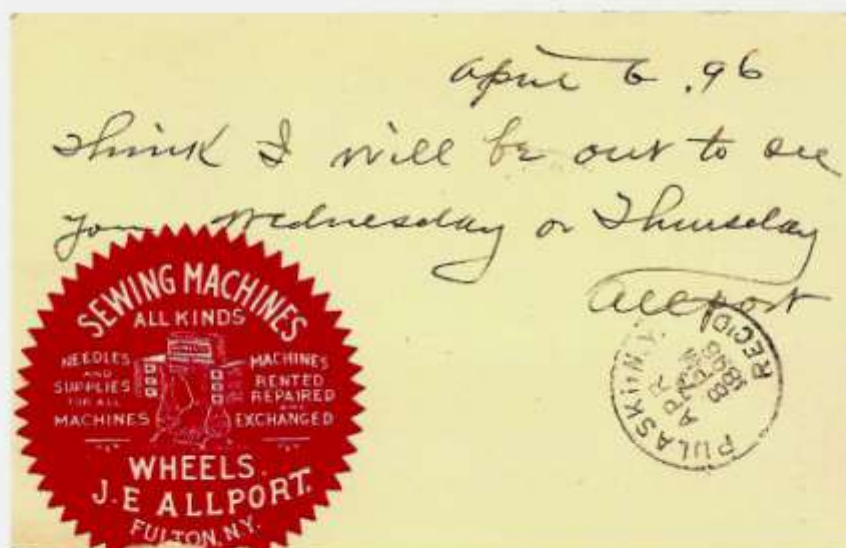 April 6, 96
Think I will be out to see
you Wednesday or Thursday
Allport
SEWING MACHINES
ALL KINDS
NEEDLES
AND
SUPPLIES
FOR ALL
MACHINES
MACHINES
RENTED
REPAIRED
AND
EXCHANGED
WHEELS.
J. E ALLPORT.
FULTON, N.Y.
PULASKI, N.Y.
APR
7
1896
REC'D